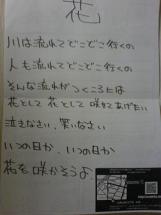 花
川は流れてどこどこ行くの
人も流れてどこどこ行くの
そんな流れがつくころには
花として 花として 咲かせてあげたい
泣きなさい 笑いなさい
いつの日か、いつの日か
花を咲かそうよ